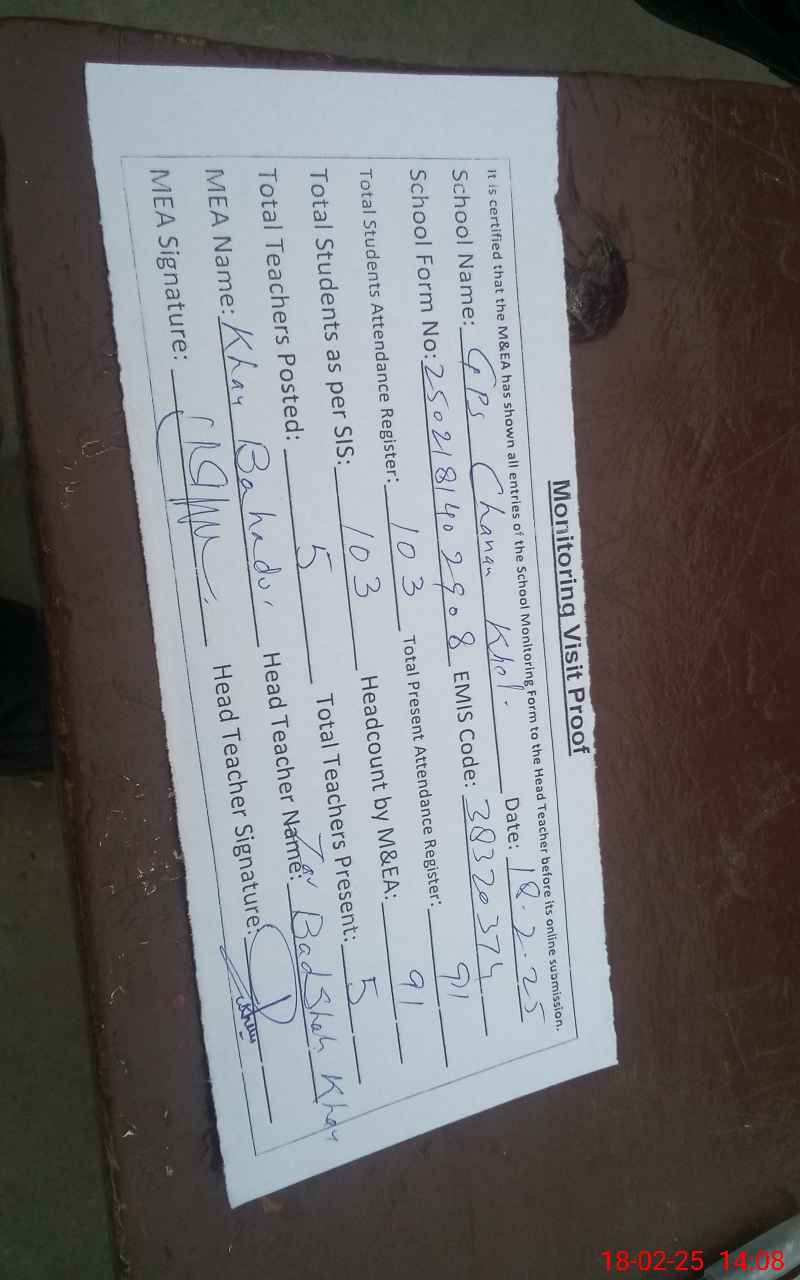 Monitoring Visit Proof
It is certified that the M&EA has shown all entries of the School Monitoring Form to the Head Teacher before its online submission.
School Name: GPS Chanan Khel. Date: 18.2.25
School Form No: 2502181402908 EMIS Code: 38320374
Total Students Attendance Register: 103 Total Present Attendance Register: 91
Total Students as per SIS: 103 Headcount by M&EA: 91
Total Teachers Posted: 5 Total Teachers Present: 5
MEA Name: Khan Bahadur Head Teacher Name: Badshah Khan
MEA Signature: Head Teacher Signature:
18-02-25 14:08